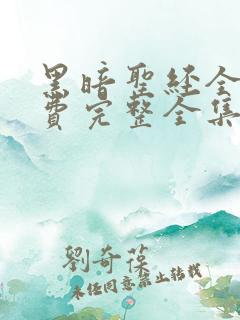 黑暗聖經全
費完整全集
劉奇葆
未经同意禁止转载